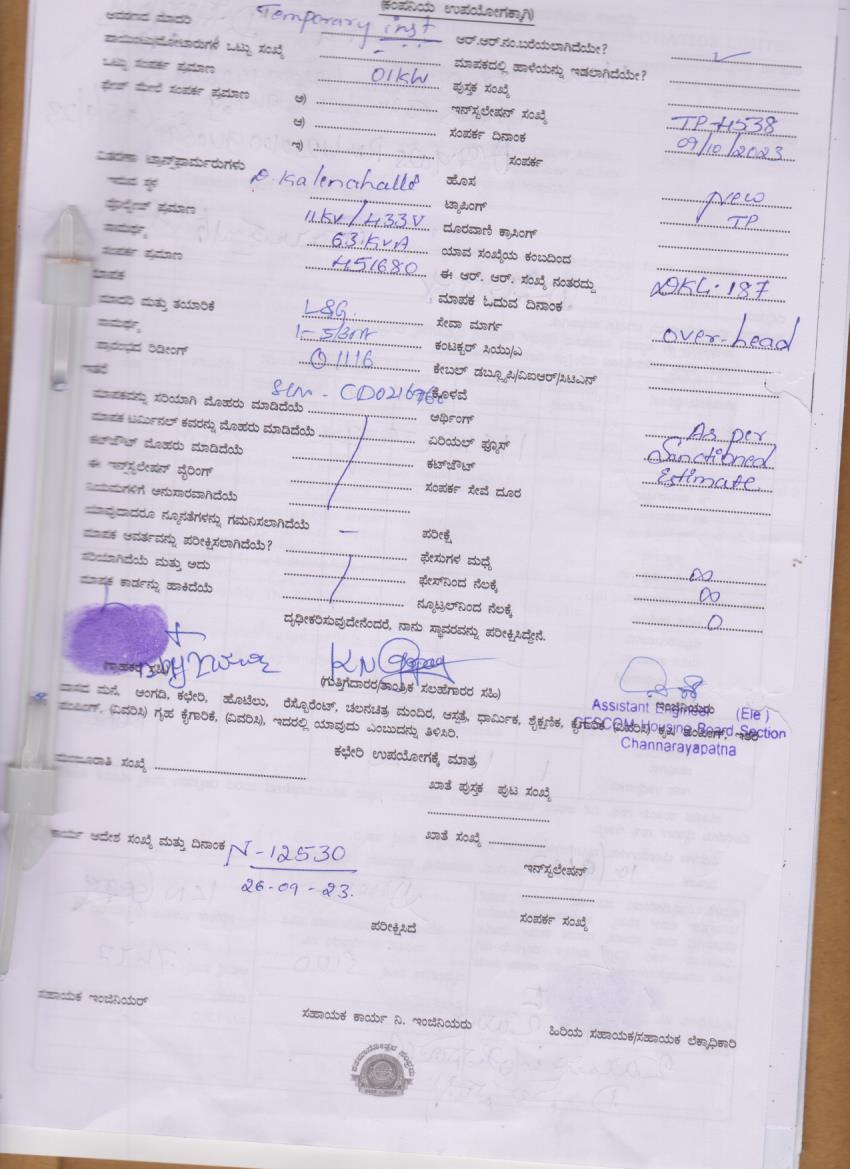 (ಕಂಪನಿಯ ಉಪಯೋಗಕ್ಕಾಗಿ)
ಆವರಣದ ಮಾದರಿ Temporary inst ಆರ್.ಆರ್.ನಂ.ಬರೆಯಲಾಗಿದೆಯೇ? ✓
ಪಾಯಿಂಟು/ಮೋಟಾರುಗಳ ಒಟ್ಟು ಸಂಖ್ಯೆ - ಮಾಪಕದಲ್ಲಿ ಹಾಳೆಯನ್ನು ಇಡಲಾಗಿದೆಯೇ?
ಒಟ್ಟು ಸಂಪರ್ಕ ಪ್ರಮಾಣ 01KW ಪುಸ್ತಕ ಸಂಖ್ಯೆ
ಫೇಸ್ ಮೇಲೆ ಸಂಪರ್ಕ ಪ್ರಮಾಣ ಅ) ಇನ್‌ಸ್ಟಲೇಷನ್ ಸಂಖ್ಯೆ TP-4538
ಆ) ಸಂಪರ್ಕ ದಿನಾಂಕ 09/10/2023
ಇ) ಸಂಪರ್ಕ
ವಿತರಣಾ ಟ್ರಾನ್ಸ್‌ಫಾರ್ಮರುಗಳು D. Kalenahalli ಹೊಸ New
ಇರುವ ಸ್ಥಳ ಟ್ಯಾಪಿಂಗ್ TP
ವೋಲ್ಟೇಜ್ ಪ್ರಮಾಣ 11KV/433V ದೂರವಾಣಿ ಕ್ರಾಸಿಂಗ್
ಸಾಮರ್ಥ್ಯ 63KVA ಯಾವ ಸಂಖ್ಯೆಯ ಕಂಬದಿಂದ
ಸಂಪರ್ಕ ಪ್ರಮಾಣ 451680 ಈ ಆರ್. ಆರ್. ಸಂಖ್ಯೆ ನಂತರದ್ದು DKL-187
ಮಾಪಕ ಮಾಪಕ ಓದುವ ದಿನಾಂಕ
ಮಾದರಿ ಮತ್ತು ತಯಾರಿಕೆ L&G. ಸೇವಾ ಮಾರ್ಗ over-head
ಸಾಮರ್ಥ್ಯ 1-5/30A ಕಂಟಕ್ಟರ್ ಸಿಯು/ಎ
ಪ್ರಾರಂಭದ ರಿಡೀಂಗ್ 01116 ಕೇಬಲ್ ಡಬ್ಲ್ಯೂಪಿ/ವಿಐಆರ್/ಸಿಟಿಎನ್
ಇತರೆ ಕೊಳವೆ
ಮಾಪಕವನ್ನು ಸರಿಯಾಗಿ ಮೊಹರು ಮಾಡಿದೆಯೆ ಅರ್ಥಿಂಗ್ As per
ಮಾಪಕ ಟರ್ಮಿನಲ್ ಕವರನ್ನು ಮೊಹರು ಮಾಡಿದೆಯೆ ಏರಿಯಲ್ ಫ್ಯೂಸ್ Sanctioned
ಕಟ್‌ಔಟ್ ಮೊಹರು ಮಾಡಿದೆಯೆ ಕಟ್‌ಔಟ್ Estimate
ಈ ಇನ್‌ಸ್ಟಲೇಷನ್ ವೈರಿಂಗ್ ಸಂಪರ್ಕ ಸೇವೆ ದೂರ
ನಿಯಮಗಳಿಗೆ ಅನುಸಾರವಾಗಿದೆಯೆ
ಯಾವುದಾದರೂ ನ್ಯೂನತೆಗಳನ್ನು ಗಮನಿಸಲಾಗಿದೆಯೆ - ಪರೀಕ್ಷೆ
ಮಾಪಕ ಆವರ್ತವನ್ನು ಪರೀಕ್ಷಿಸಲಾಗಿದೆಯೆ? ಫೇಸುಗಳ ಮಧ್ಯೆ ∞
ಸರಿಯಾಗಿದೆಯೆ ಮತ್ತು ಅದು ಫೇಸ್‌ನಿಂದ ನೆಲಕ್ಕೆ ∞
ಮಾಪಕ ಕಾರ್ಡನ್ನು ಹಾಕಿದೆಯೆ ನ್ಯೂಟ್ರಲ್‌ನಿಂದ ನೆಲಕ್ಕೆ 0
ದೃಢೀಕರಿಸುವುದೇನೆಂದರೆ, ನಾನು ಸ್ಥಾವರವನ್ನು ಪರೀಕ್ಷಿಸಿದ್ದೇನೆ.
(ಗ್ರಾಹಕರ ಸಹಿ) (ಗುತ್ತಿಗೆದಾರರ/ತಾಂತ್ರಿಕ ಸಲಹೆಗಾರರ ಸಹಿ) ಇಂಜಿನಿಯರು
Assistant Engineer (Ele)
ವಾಸದ ಮನೆ, ಅಂಗಡಿ, ಕಛೇರಿ, ಹೊಟೆಲು, ರೆಸ್ಟೊರೆಂಟ್, ಚಲನಚಿತ್ರ ಮಂದಿರ, ಆಸ್ಪತ್ರೆ, ಧಾರ್ಮಿಕ, ಶೈಕ್ಷಣಿಕ, ಕೈಗಾರಿಕೆ (ವಿವರಿಸಿ) ಕೃಷಿ ಪಂಪಿಂಗ್, ಇತರ
CESCOM Housing Board Section
ಪಂಪಿಂಗ್, (ವಿವರಿಸಿ) ಗೃಹ ಕೈಗಾರಿಕೆ, (ವಿವರಿಸಿ), ಇದರಲ್ಲಿ ಯಾವುದು ಎಂಬುದನ್ನು ತಿಳಿಸಿರಿ.
Channarayapatna
ಕಛೇರಿ ಉಪಯೋಗಕ್ಕೆ ಮಾತ್ರ
ಮಂಜೂರಾತಿ ಸಂಖ್ಯೆ ಖಾತೆ ಪುಸ್ತಕ ಪುಟ ಸಂಖ್ಯೆ
ಕಾರ್ಯ ಆದೇಶ ಸಂಖ್ಯೆ ಮತ್ತು ದಿನಾಂಕ N-12530 ಖಾತೆ ಸಂಖ್ಯೆ
26-09-23. ಇನ್‌ಸ್ಟಲೇಷನ್
ಪರೀಕ್ಷಿಸಿದೆ ಸಂಪರ್ಕ ಸಂಖ್ಯೆ
ಸಹಾಯಕ ಇಂಜಿನಿಯರ್ ಸಹಾಯಕ ಕಾರ್ಯ ನಿ. ಇಂಜಿನಿಯರು ಹಿರಿಯ ಸಹಾಯಕ/ಸಹಾಯಕ ಲೆಕ್ಕಾಧಿಕಾರಿ